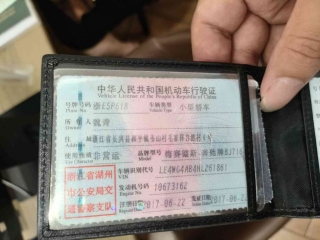 中华人民共和国机动车行驶证
Vehicle License of the People's Republic of China
号牌号码 浙E5F618 车辆类型 小型轿车
Plate No. Vehicle Type
所有人
Owner
住址 浙江省长兴县
Address
使用性质 非营运 品牌型号 梅赛德斯-奔驰牌BJ710
Use Character Model
浙江省湖州 车辆识别代号
VIN
市公安局交 发动机号码 10673162
Engine No.
通警察支队 注册日期 2017-06-22 发证日期 2017-06-22
Register Date Issue Date